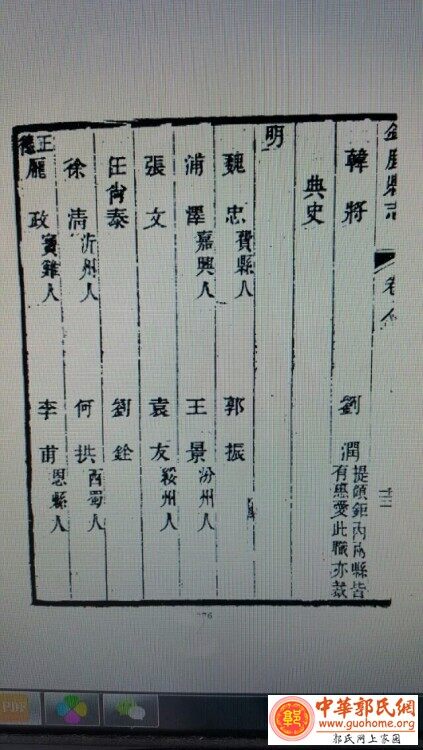 金鄉縣志 卷
韓將 劉潤 提領鉅內兩縣皆
有惠愛此職亦裁
典史
明
魏忠 費縣人 郭振
浦澤 嘉興人 王景 汾州人
張文 袁友 綏州人
汪尙泰 劉銓
徐清 沂州人 何拱 西蜀人
正德
龐政 寶雞人 李甫 恩縣人
PDF
中華郭氏網
www.guohome.org
郭氏网上家园